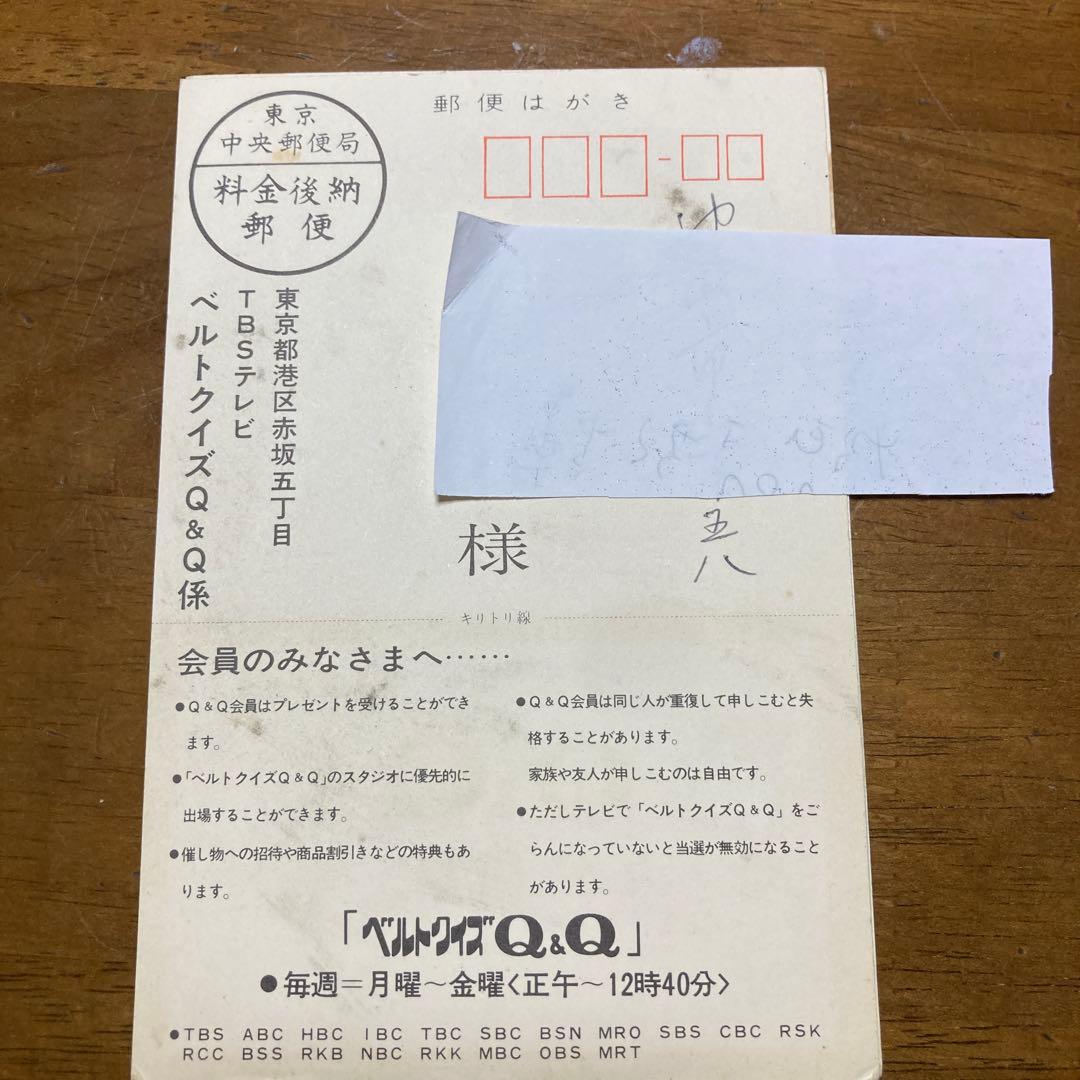 郵便はがき
東京
中央郵便局
料金後納
郵便
東京都港区赤坂五丁目
TBSテレビ
ベルトクイズQ&Q係
様
五八
キリトリ線
会員のみなさまへ……
●Q&Q会員はプレゼントを受けることができ
ます。
●「ベルトクイズQ&Q」のスタジオに優先的に
出場することができます。
●催し物への招待や商品割引きなどの特典もあ
ります。
●Q&Q会員は同じ人が重復して申しこむと失
格することがあります。
家族や友人が申しこむのは自由です。
●ただしテレビで「ベルトクイズQ&Q」をご
らんになっていないと当選が無効になること
があります。
「ベルトクイズQ&Q」
●毎週=月曜〜金曜<正午〜12時40分>
●TBS ABC HBC IBC TBC SBC BSN MRO SBS CBC RSK
RCC BSS RKB NBC RKK MBC OBS MRT